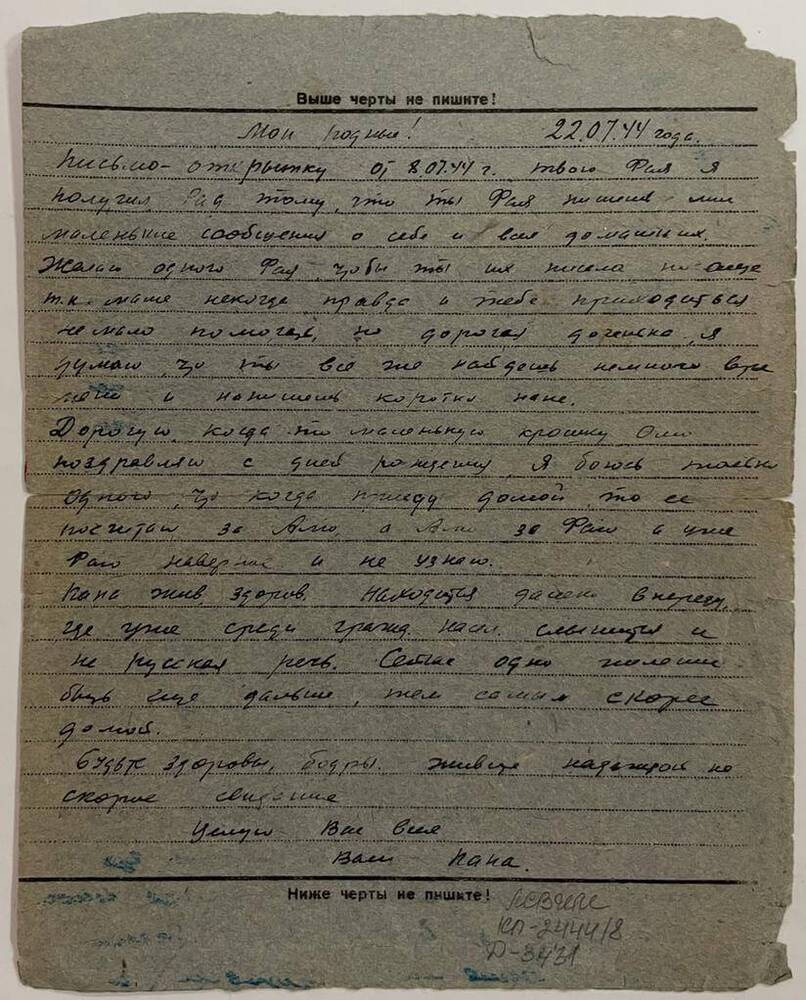 Выше черты не пишите!
Мои родные! 22.07.44 года.
Письмо-открытку от 8.07.44 г. твою Фая я
получил. Рад тому, что ты Фая пишешь мне
маленькие сообщения о себе и всех домашних.
Желаю одного Фая, чтобы ты их писала почаще
т.к. маме некогда, правда и тебе приходиться
не мало помогать, но дорогая доченька, я
думаю, что ты все же найдешь немного вре
мени и напишешь коротко папе.
Дорогую, когда то маленькую крошку Олю
поздравляю с днем рождения. Я боюсь только
одного, что когда приеду домой, то ее
посчитаю за Алю, а Алю за Фаю а уже
Фаю наверное и не узнаю.
Папа жив, здоров. Находится далеко впереди,
где уже среди гражд. насел. слышится и
не русская речь. Сейчас одно желание
быть еще дальше, тем самым скорее
домой.
Будьте здоровы, бодры. Живите надеждой на
скорое свидание
Целую Вас всех
Ваш Папа.
Ниже черты не пишите!
КП-2444/8
Д-3431